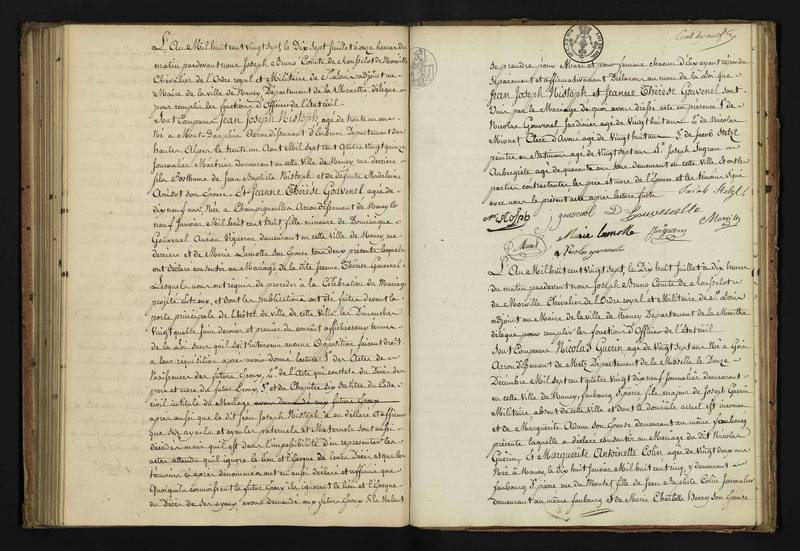 L'An Mil huit cent vingt sept, le Dix sept Juillet à onze heures du
matin pardevant nous Joseph Bruno Comte de Rouffelot de Morville
Chevalier de l'Ordre royal et Militaire de St Louis adjoint au
Maire de la ville de Nancy Département de la Meurthe délégué
pour remplir les fonctions d'Officier de l'Etat civil
Sont Comparus Jean Joseph Nistoph agé de trente un ans
Né à Mont-Dauphin Arrondissement d'Embrun Département des
hautes Alpes le trente un Aout Mil sept cent quatre vingt quinze
Journalier demeurant en cette Ville de Nancy rue derriere
fils Posthume de Jean Baptiste Nistoph et de défunte Madeleine
son Epouse Et Jeanne Thérèse Gouvenel agée de
dix neuf ans Née à Champigneulles Arrondissement de Nancy le
neuf Janvier Mil huit cent huit fille mineure de Dominique
Gouvenel Ancien Vigneron demeurant en cette Ville de Nancy rue
derriere et de Marie Lamotte son Epouse tous deux présents lesquels
ont déclaré consentir au Mariage de la dite Jeanne Thérèse Gouvenel
Lesquels nous ont requis de procéder à la Célébration du Mariage
projetté entr'eux, et dont les publications ont été faites devant la
porte principale de l'hôtel de ville de cette ville les Dimanches
Vingt quatre Juin dernier et premier du courant affichées aux termes
de la Loi sans qu'il soit intervenu aucune Opposition faisant droit
à leur réquisition après avoir donné lecture 1° des Actes de
Naissances des futurs Epoux, 2° de l'Acte qui constate le Décès des
pere et mere du futur Epoux, 3° et du Chapitre six du titre du Code
Civil intitulé du Mariage avons demandé aux futurs Epoux
après aussi que le dit Jean Joseph Nistoph a eu déclaré et affirmé
que ses ayeuls et ayeules paternels et Maternels sont aussi
décédés mais qu'il est dans l'impossibilité d'en représenter les
actes attendu qu'il ignore le lieu et l'époque de leurs Décès et que les
témoins ci après dénommés ont eu aussi déclaré et affirmé que
Quoiqu'ils connoissent le futur Epoux ils ignorent le lieu et l'Epoque
du Décès de ses ayeux avons demandé aux futurs Epoux s'ils veulent
se prendre pour Mari et pour femme chacun d'eux ayant répondu
séparément et affirmativement Déclarons au nom de la Loi que
Jean Joseph Nistoph et Jeanne Thérèse Gouvenel sont
Unis par le Mariage de quoi avons dressé acte en présence 1° de
Nicolas Gouvenel Jardinier agé de Vingt huit ans 2° de Nicolas
Clerc d'Avoué agé de Vingt huit ans 3° de Jacob Stetzl
peintre en batiment agé de Vingt sept ans 4° Joseph Ingram
Aubergiste agé de quarante ans tous demeurant en cette Ville et ont les
parties contractantes les pere et mere de l'épouse et les témoins signé
avec nous le présent acte après lecture faite
Jacob Stetzl
Nistoph gouvenel D Gouvenelle
Marie lamotte Morville
Nicolas gouvenelle
L'An Mil huit cent vingt sept, le Dix huit Juillet à dix heures
du matin pardevant nous Joseph Bruno Comte de Rouffelot
de Morville Chevalier de l'Ordre royal et Militaire de St Louis
adjoint au Maire de la ville de Nancy Département de la Meurthe
délégué pour remplir les fonctions d'Officier de l'Etat civil
Sont Comparus Nicolas Guerin agé de Vingt sept ans Né à Goin
Arrondissement de Metz Département de la Moselle le Douze
Décembre Mil sept cent quatre Vingt dix neuf Journalier demeurant
en cette Ville de Nancy, faubourg St pierre fils majeur de Joseph Guerin
Militaire absent de cette Ville et dont le domicile actuel est inconnu
et de Marguerite Adam son Epouse demeurant au même faubourg
présente laquelle a déclaré consentir au Mariage du dit Nicolas
Guerin, Et Marguerite Antoinette Colin agée de Vingt deux ans
Née à Nancy, le dix huit Janvier Mil huit cent cinq, y demeurant
faubourg St pierre rue du Montet fille de Jean Baptiste Colin Journalier
demeurant au même faubourg et de Marie Charlotte Henry son Epouse